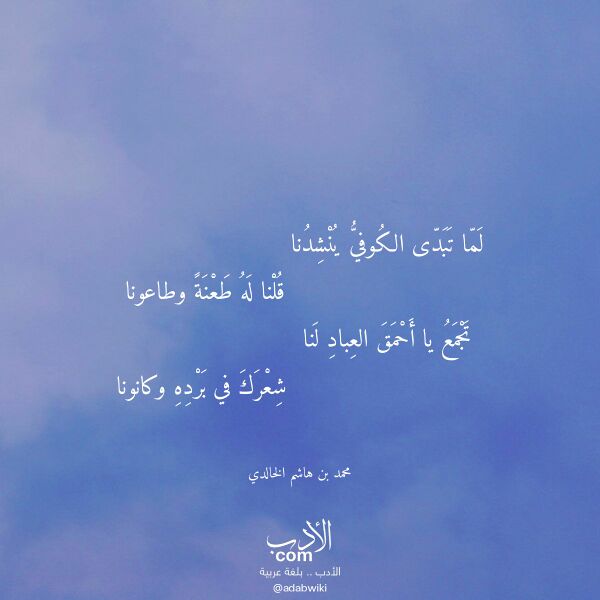 لَمّا تَبَدّى الكُوفيُّ يُنْشِدُنا
قُلْنا لَهُ طَعْنَةً وطاعونا
تَجْمَعُ يا أَحْمَقَ العِبادِ لَنا
شِعْرَكَ في بَرْدِهِ وكانونا
محمد بن هاشم الخالدي
الأدب
com
الأدب .. بلغة عربية
@adabwiki